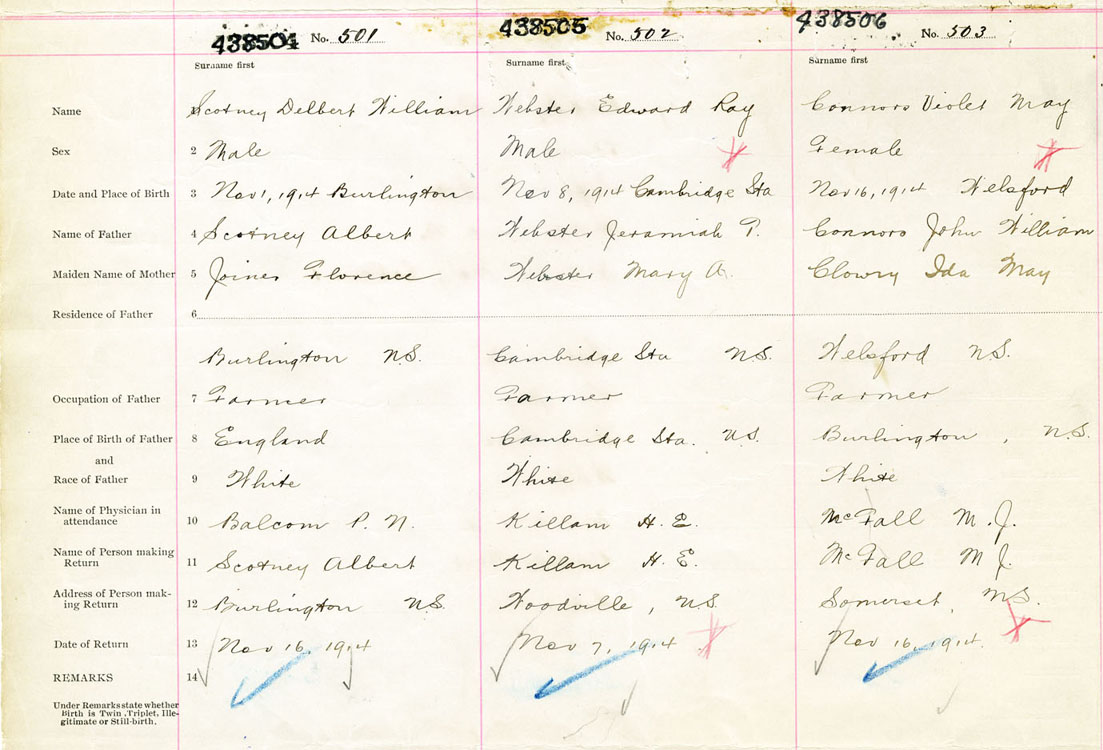 438504 No. 501 438505 No. 502 438506 No. 503
Surname first Surname first Surname first
Name 1 Scotney Delbert William Webster Edward Ray Connors Violet May
Sex 2 Male Male Female
Date and Place of Birth 3 Nov 1, 1914 Burlington Nov 8, 1914 Cambridge Sta Nov 16, 1914 Welsford
Name of Father 4 Scotney Albert Webster Jeramiah P. Connors John William
Maiden Name of Mother 5 Joiner Florence Webster Mary A. Clowry Ida May
Residence of Father 6
Burlington N.S. Cambridge Sta N.S. Welsford N.S.
Occupation of Father 7 Farmer Farmer Farmer
Place of Birth of Father 8 England Cambridge Sta. N.S. Burlington, N.S.
and
Race of Father 9 White White White
Name of Physician in
attendance 10 Balcom P. N. Killam H. E. McFall M. J.
Name of Person making
Return 11 Scotney Albert Killam H. E. McFall M J.
Address of Person mak-
ing Return 12 Burlington N.S. Woodville, N.S. Somerset, N.S.
Date of Return 13 Nov 16, 1914 Nov 7, 1914 Nov 16, 1914.
REMARKS 14
Under Remarks state whether
Birth is Twin, Triplet, Ille-
gitimate or Still-birth.